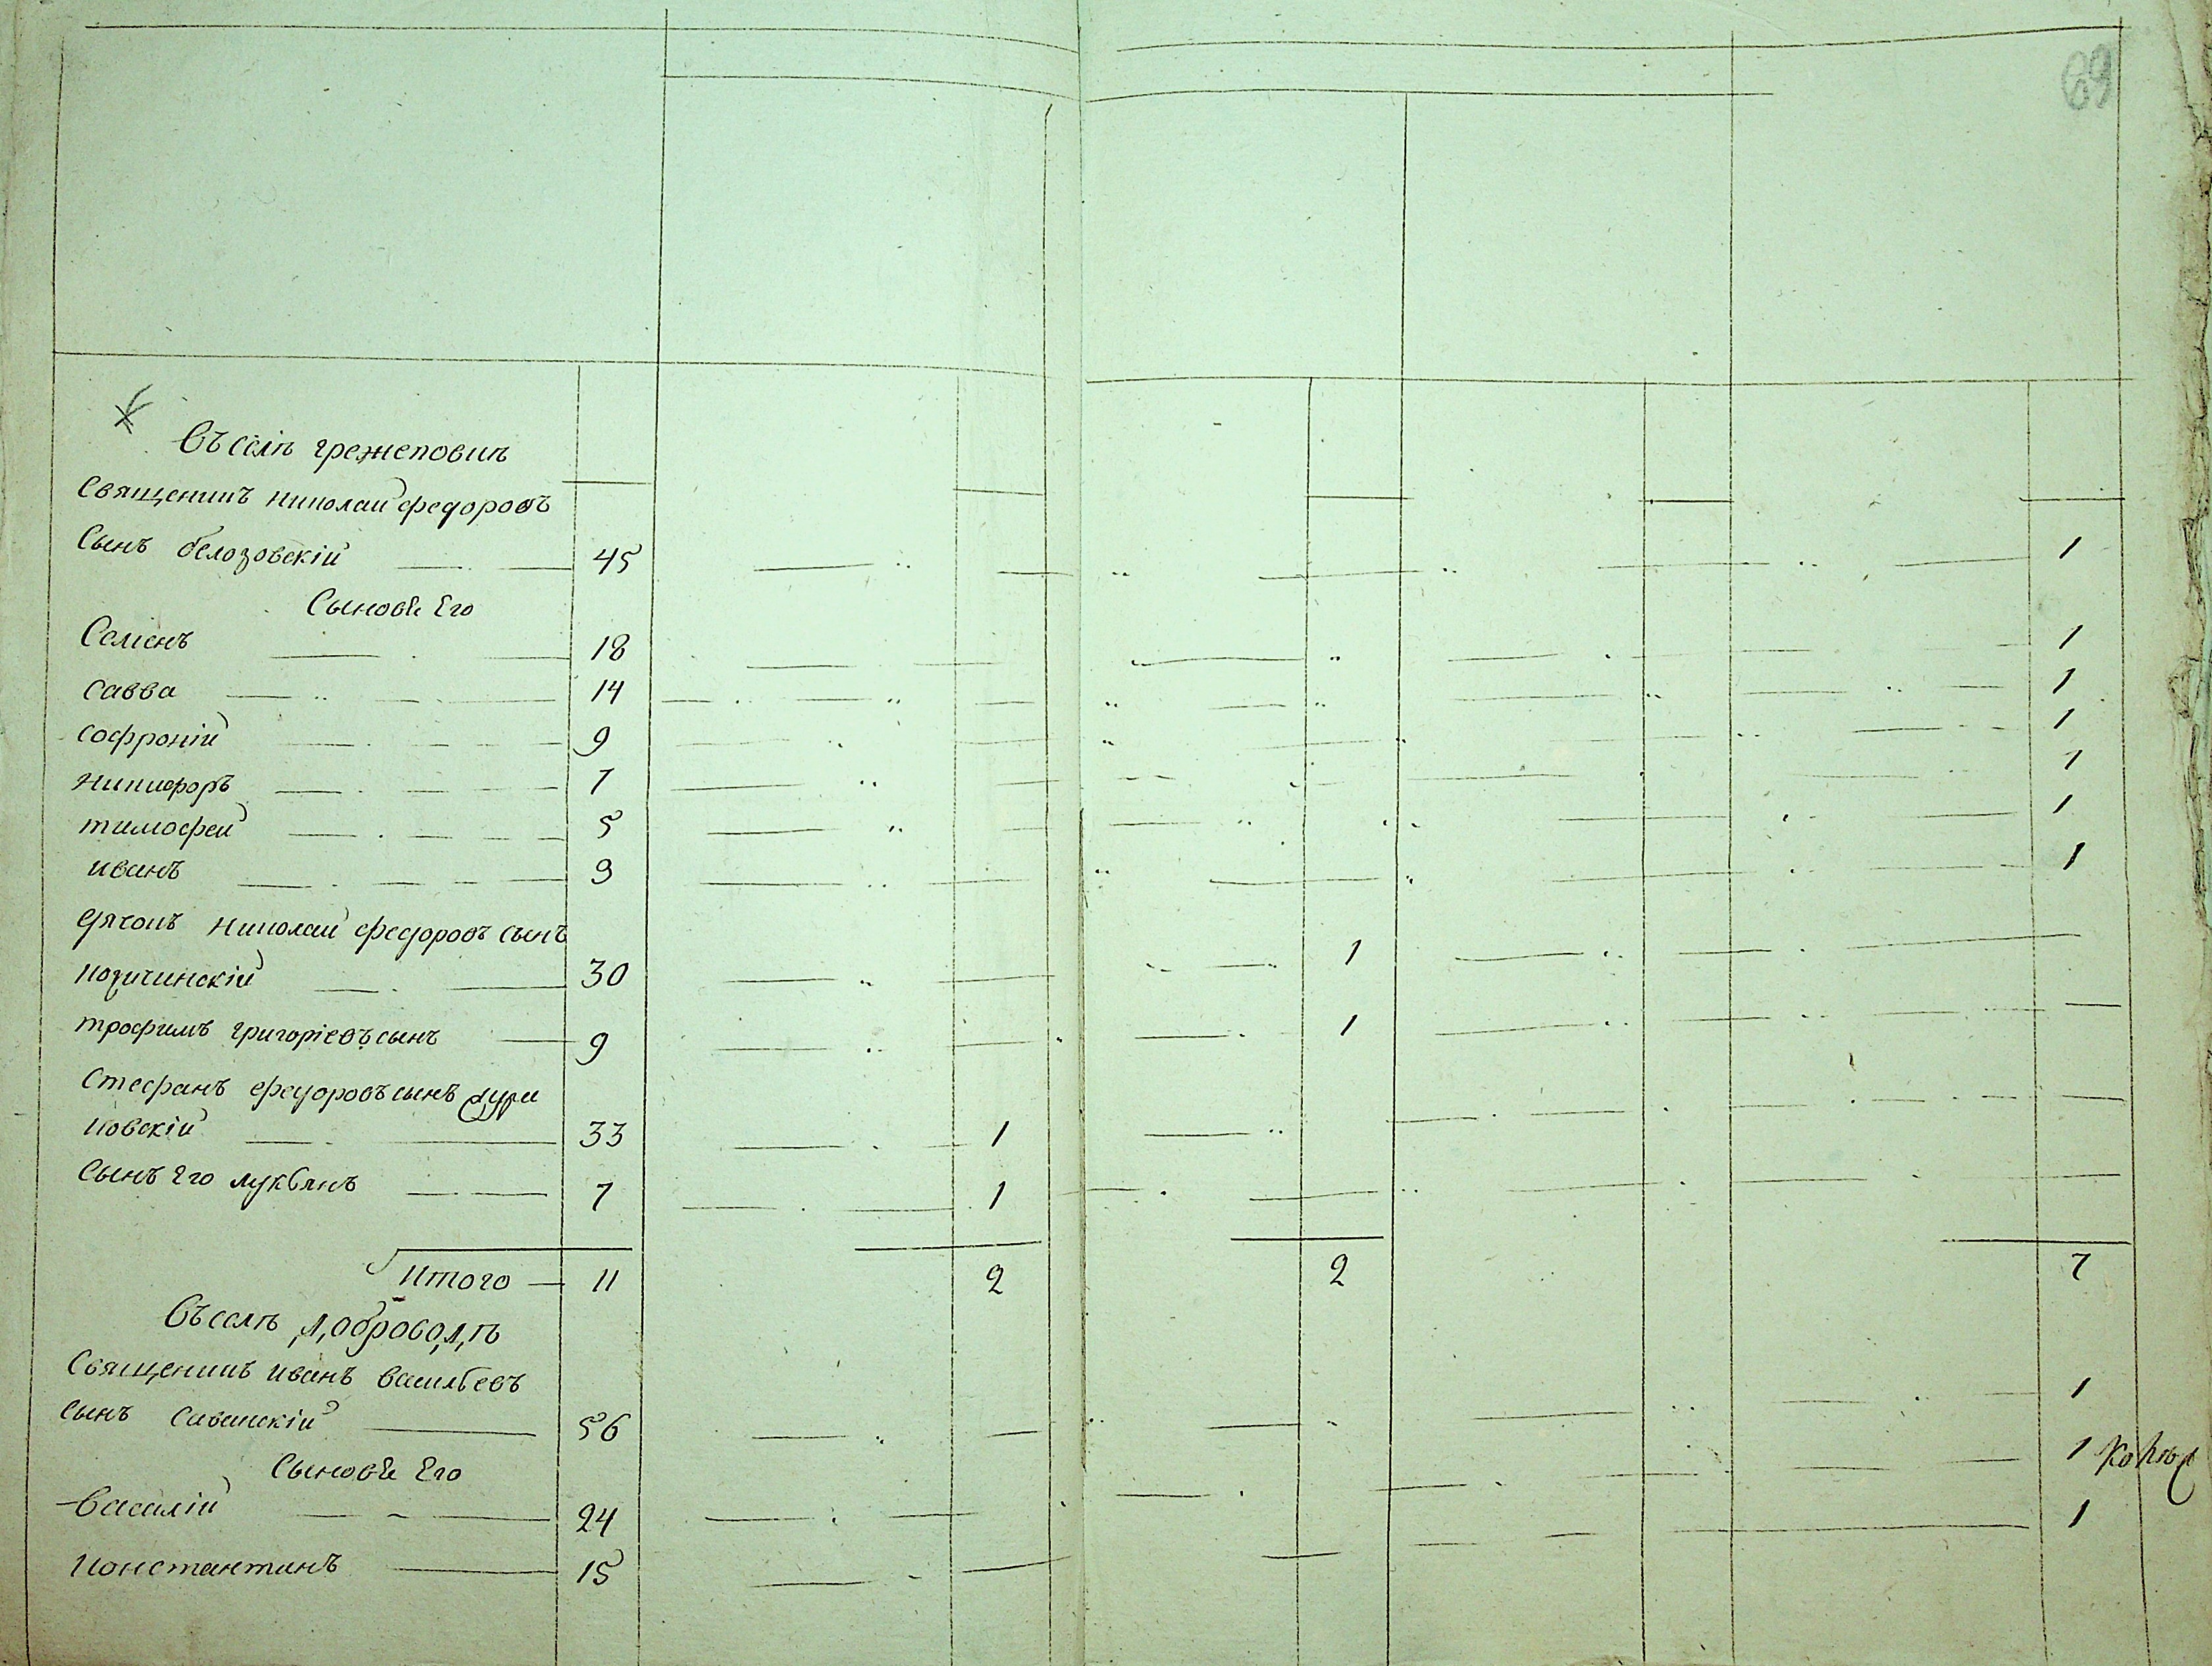 69
Въ селѣ грежеповкѣ
Священикъ николай федоровъ
Сынъ белозовскій 45 1
Сыновѣ Его
Семенъ 18 1
Савва 14 1
софроній 9 1
никифоръ 7 1
тимофей 5 1
иванъ 3 1
дячокъ николай федоровъ сынъ
30 1
трофимъ григоріевъ сынъ 9 1
Стефанъ федоровъ сынъ
33 1
Сынъ Его лукьянъ 7 1
Итого 11 2 2 7
Въ селѣ доброводѣ
Священикъ иванъ васильевъ
сынъ Савицкій 56 1
Сыновѣ Его
Василій 24 1
Константинъ 15 1